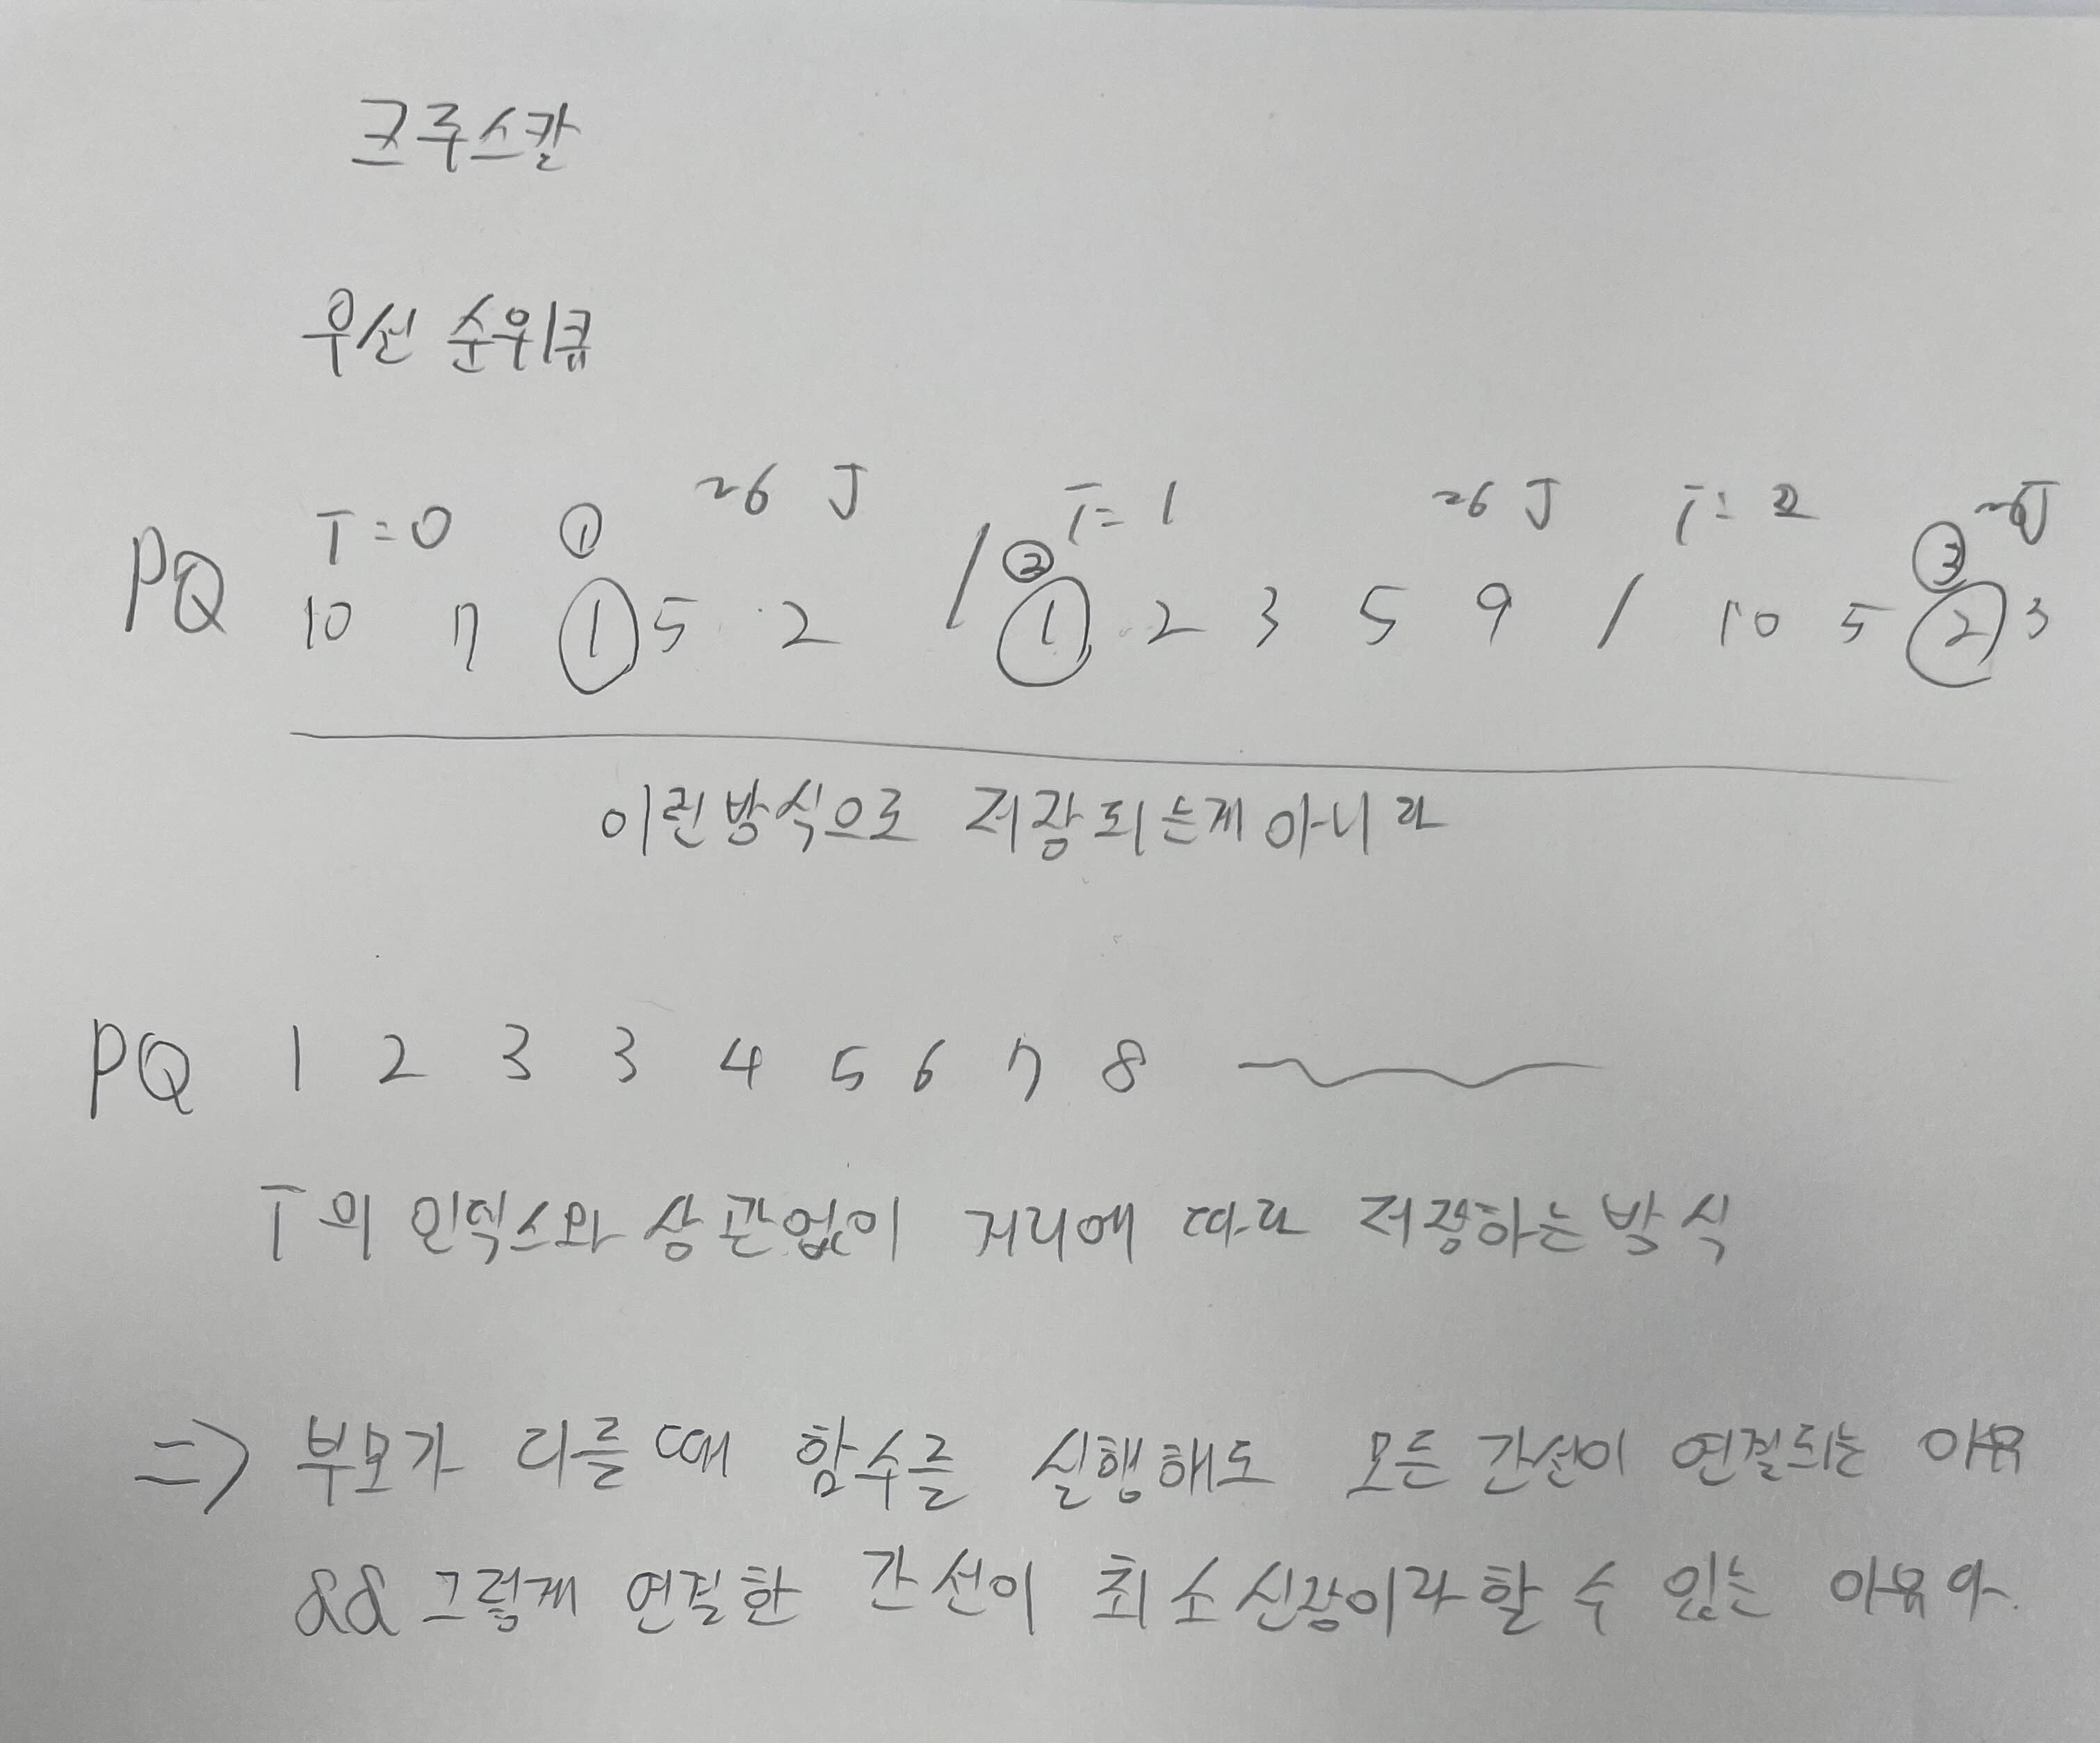 크루스칼
우선 순위큐
T=0 ① ~6 J / T=1 ~6 J T=2 ~6J
PQ 10 7 ① 5 2 / ② ① 2 3 5 9 / 10 5 ③ ② 3
이런방식으로 저장되는게아니라
PQ 1 2 3 3 4 5 6 7 8
T의 인덱스와 상관없이 거리에 따라 저장하는방식
=> 부모가 다를때 함수를 실행해도 모든 간선이 연결되는 이유
&& 그렇게 연결한 간선이 최소신장이라할 수 있는 이유야.